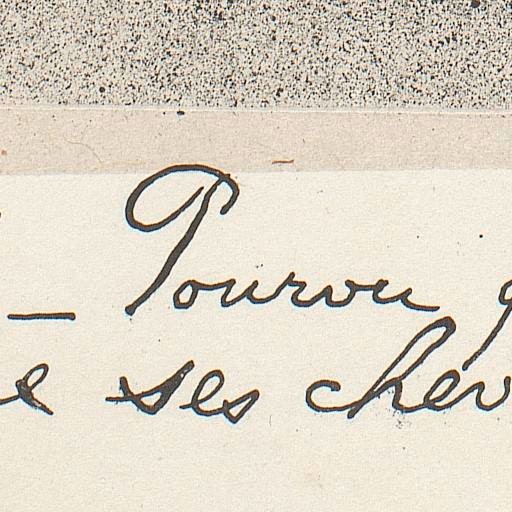 — Pourvu q
e ses chev